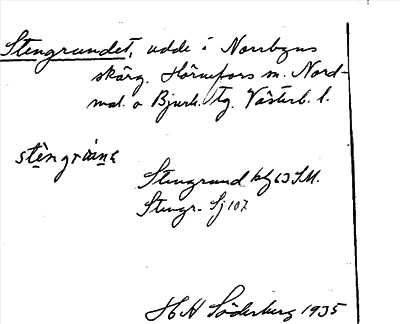 Stengrundet, udde i Norrbyns
skärg. Hörnefors sn. Nord-
mal. o Bjurh. tg. Västerb. l.
stèngrànɛ
Stengrund kg 63 S.M.
Stengr. Sj 107
H H Söderberg 1935